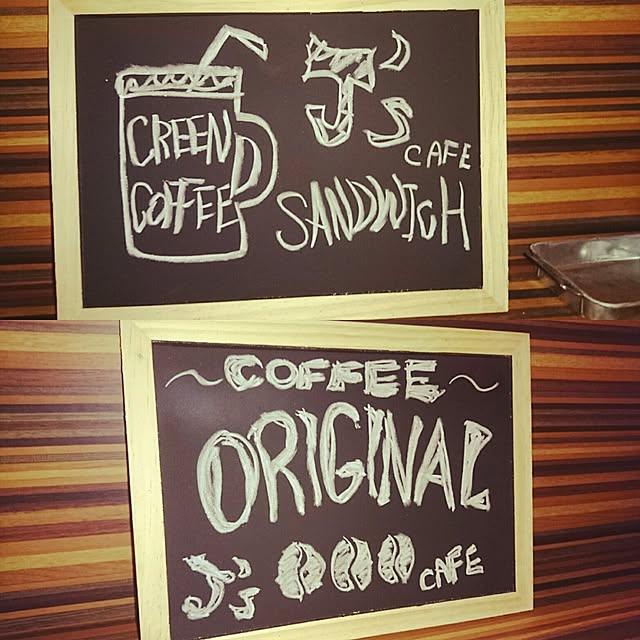 CREEN
COFFEE
J's
CAFE
SANDWICH
~ COFFEE ~
ORIGINAL
J's CAFE